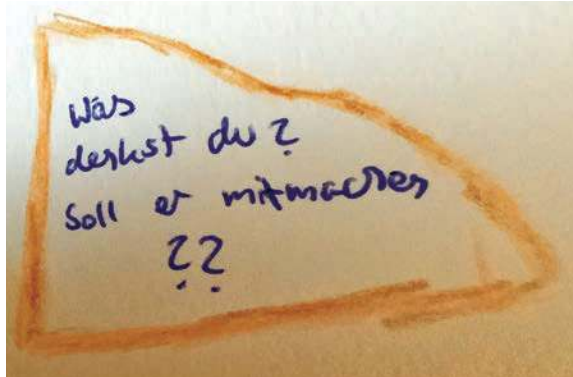 Was
denkst du?
Soll er mitmachen
??